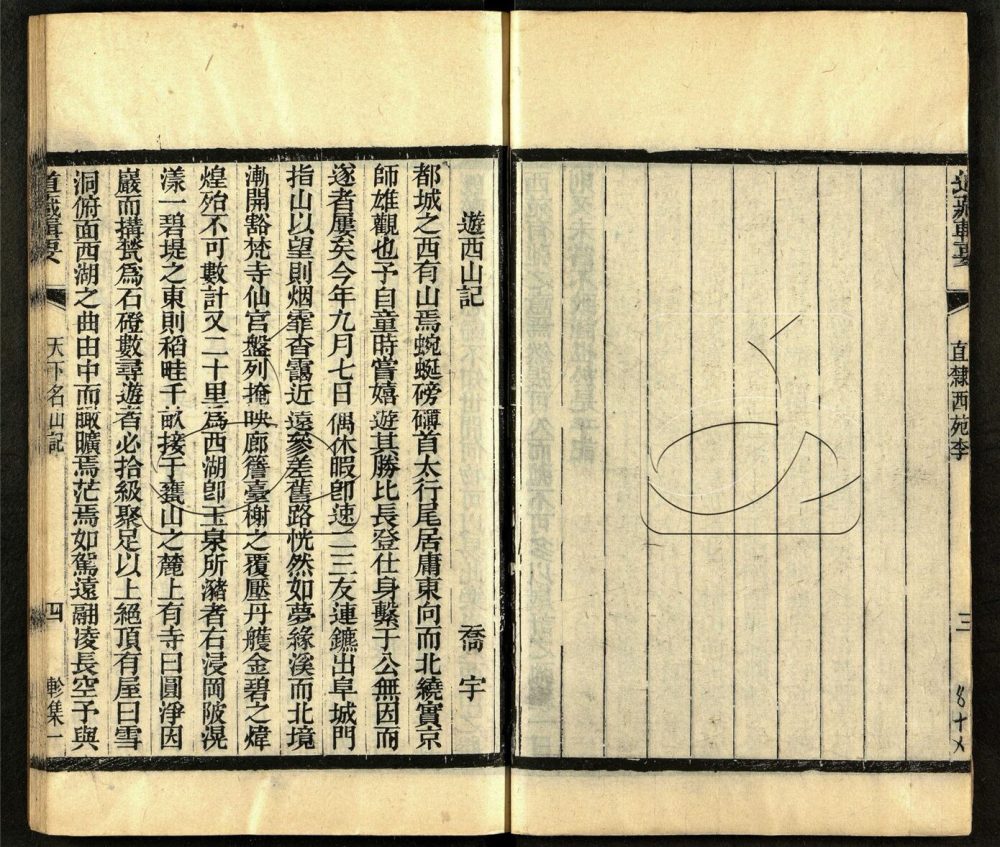 道藏輯要
直隸西苑李
三
遊西山記
喬宇
都城之西有山焉蜿蜒磅礴首太行尾居庸東向而北繞實京
師雄觀也予自童時嘗嬉遊其勝比長登仕身繫于公無因而
遂者屢矣今年九月七日偶休暇卽速二三友連鑣出阜城門
指山以望則烟霏杳靄近遠參差舊路恍然如夢緣溪而北境
漸開豁梵寺仙宮盤列掩映廊簷臺榭之覆壓丹艧金碧之煒
煌殆不可數計又二十里爲西湖卽玉泉所瀦者右浸岡陂滉
漾一碧堤之東則稻畦千畝接于甕山之麓上有寺曰圓淨因
巖而搆甃爲石磴數尋遊者必拾級聚足以上絕頂有屋曰雪
洞俯面西湖之曲由中而瞰曠焉茫焉如駕遠翮凌長空予與
道藏輯要
天下名山記
四
軫集一